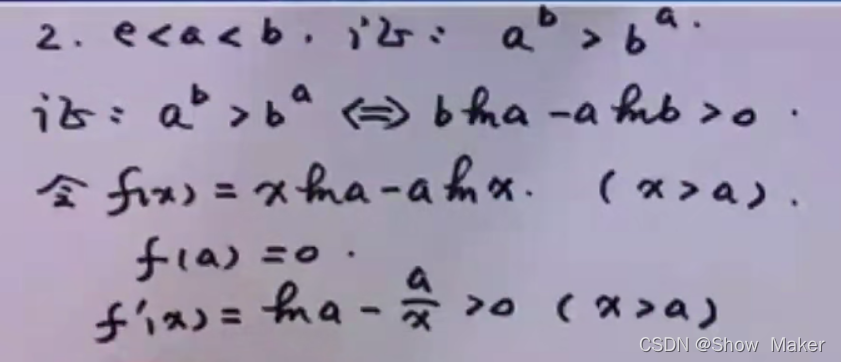 2. e<a<b. 证: a^b > b^a.
证: a^b > b^a ⇔ b ln a - a ln b > 0.
令 f(x) = x ln a - a ln x. (x > a).
f(a) = 0.
f'(x) = ln a - \frac{a}{x} > 0 (x > a)
CSDN @Show Maker